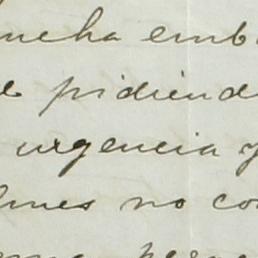 ucha emb
pidiend
urgencia y
no co